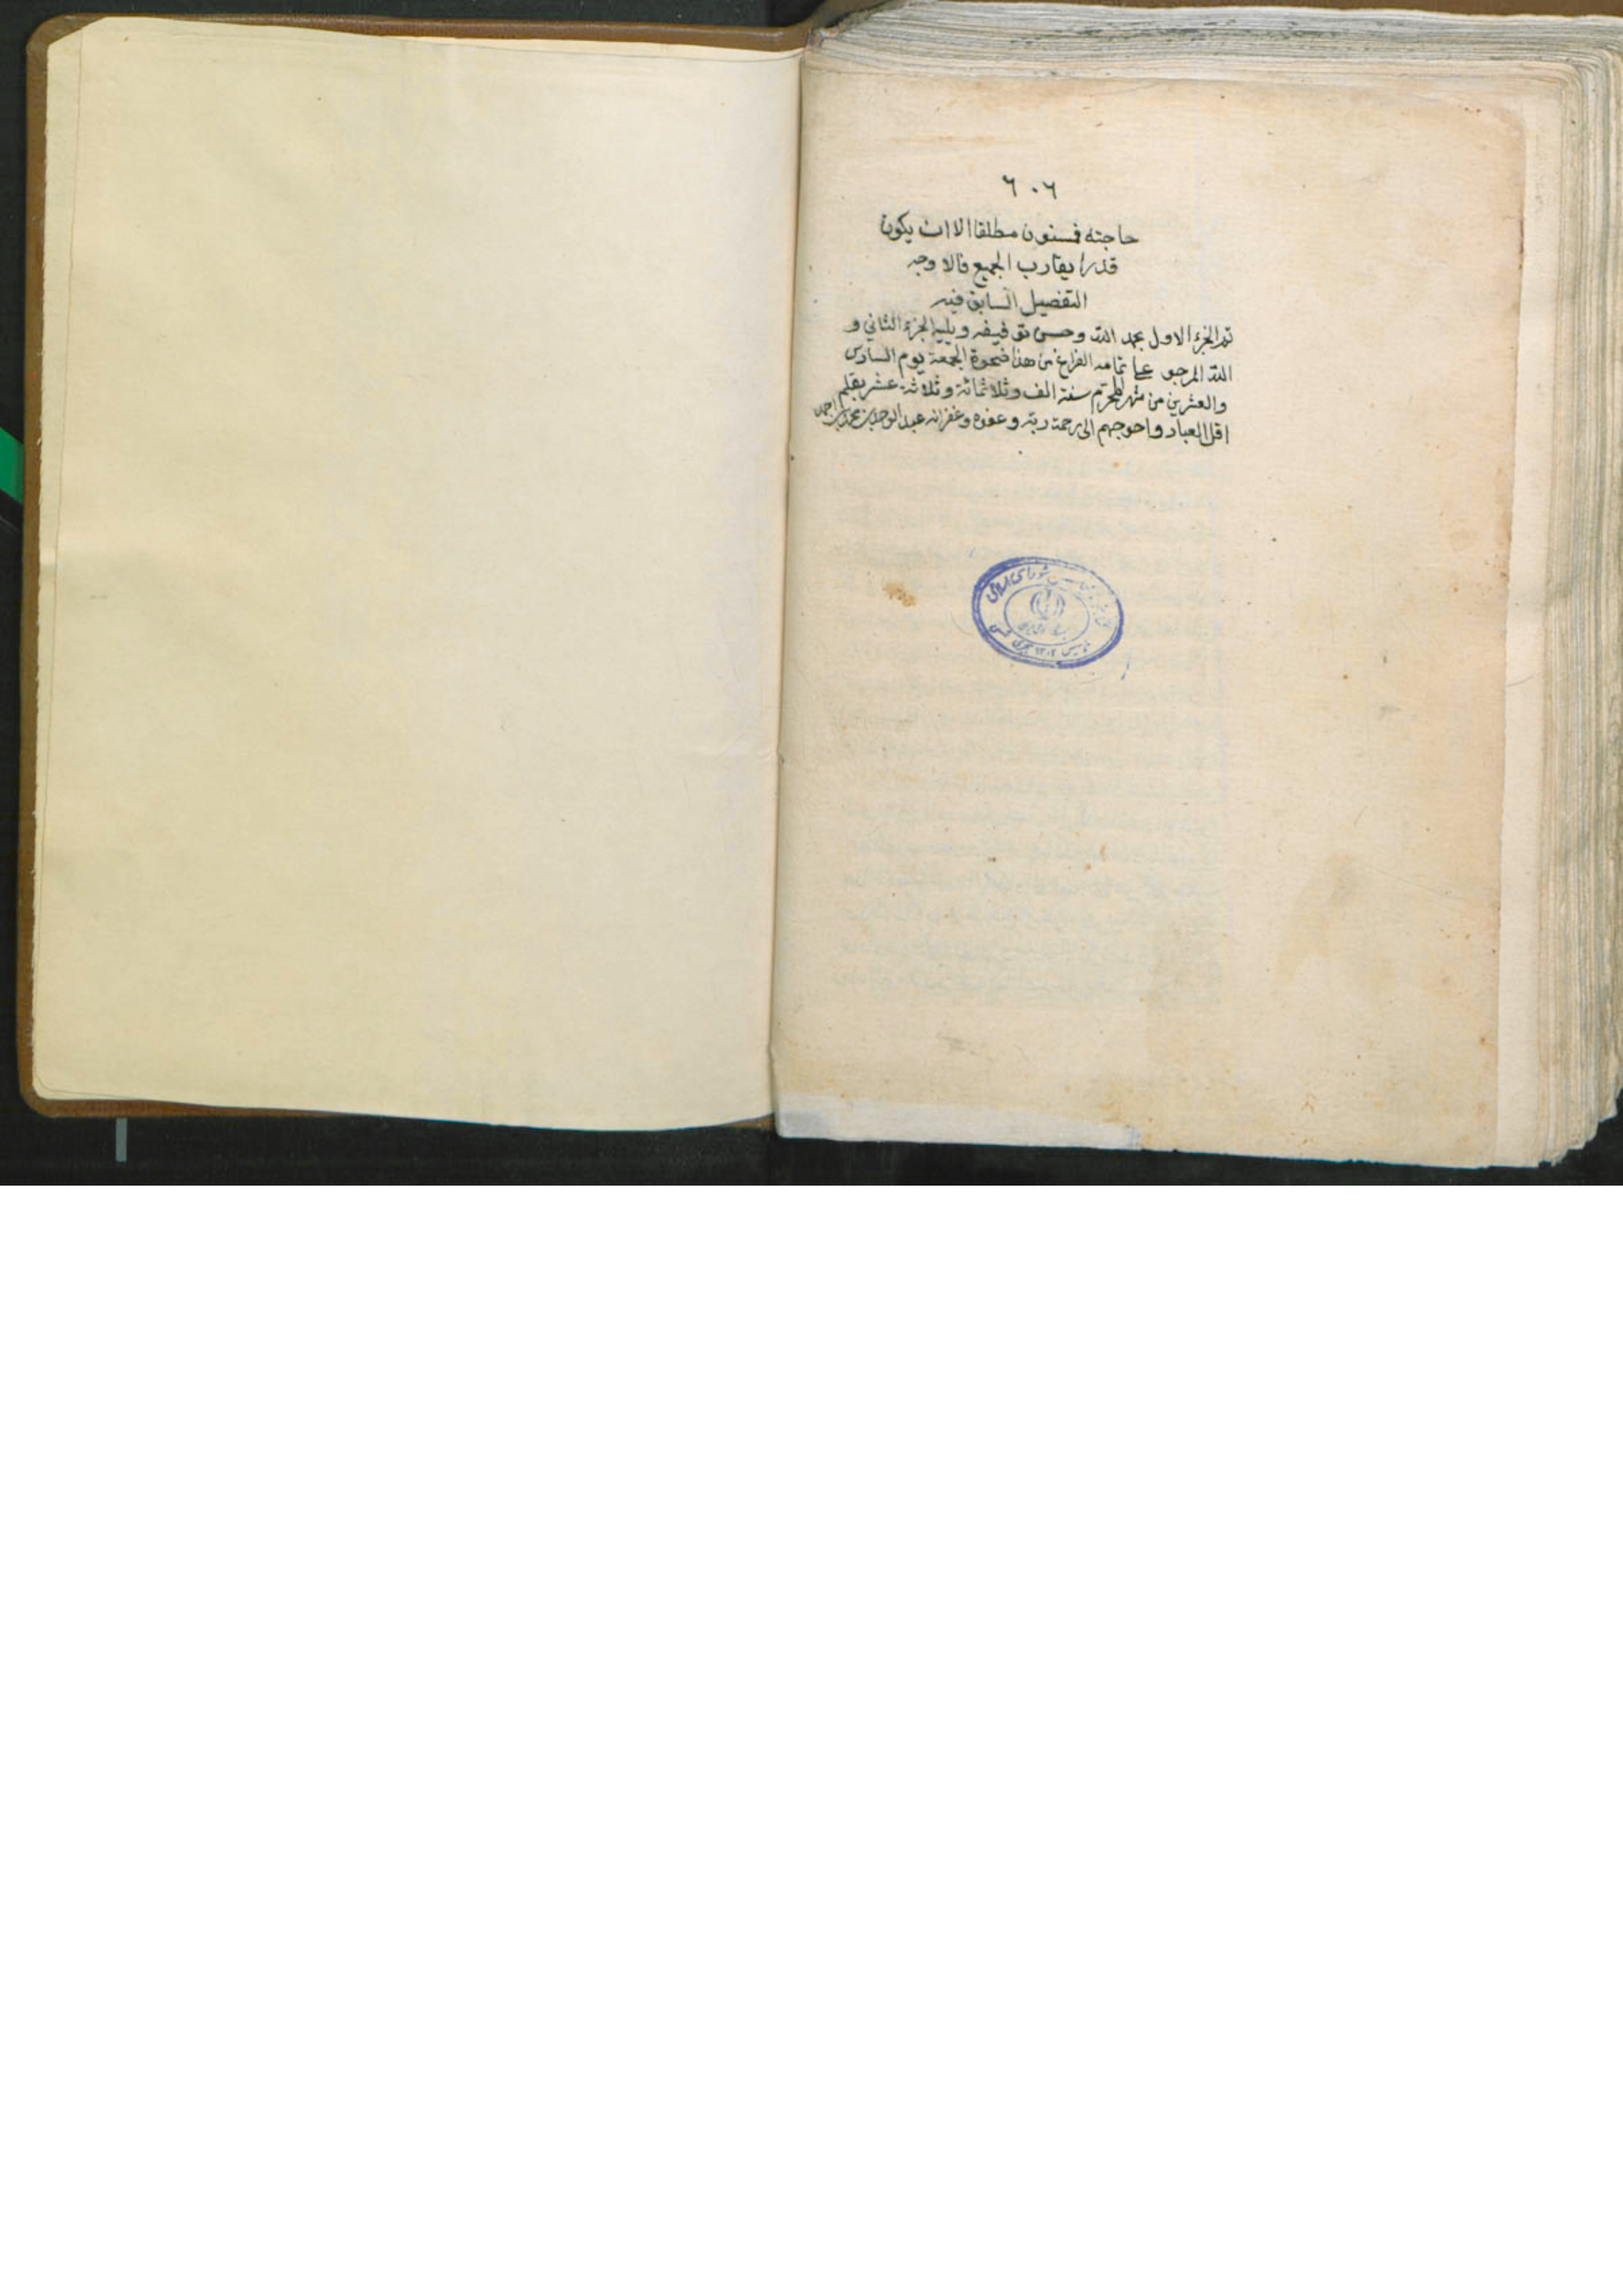 ٦٠٦
حاجته فمسنون مطلقا الا ان يكون
قدرا يقارب الجميع فالاوجه
التفصيل السابق فيه
تم الجزء الاول بحمد الله وحسن توفيقه ويليه الجزء الثاني و
الله المرجو على تمامه الفراغ من هذا ضحوة الجمعة يوم السادس
والعشرين من شهر المحرم سنة الف وثلاثمائة وثلاثة عشر بقلم
اقل العباد واحوجهم الى رحمة ربه وعفوه وغفرانه عبد الوهاب بن محمد بن احمد
شورای اسلامی
تاسیس ١٣٠٢ هجری شمسی